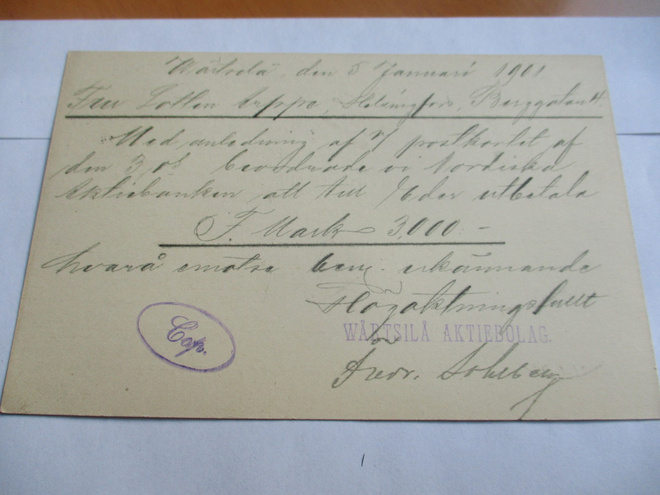 Wärtsilä, den 5 Januari 1901
Fru Lotten Aeppe, Helsingfors, Berggatan 4.
Med anledning af postkortet af
den 3 ds beordrade vi Nordiska
Aktiebanken att till Eder utbetala
F. Mark 3,000: –
hvarå emotse ben. erkännande
Högaktningsfullt
WÄRTSILÄ AKTIEBOLAG.
Cop.
Fredr. Sohlberg